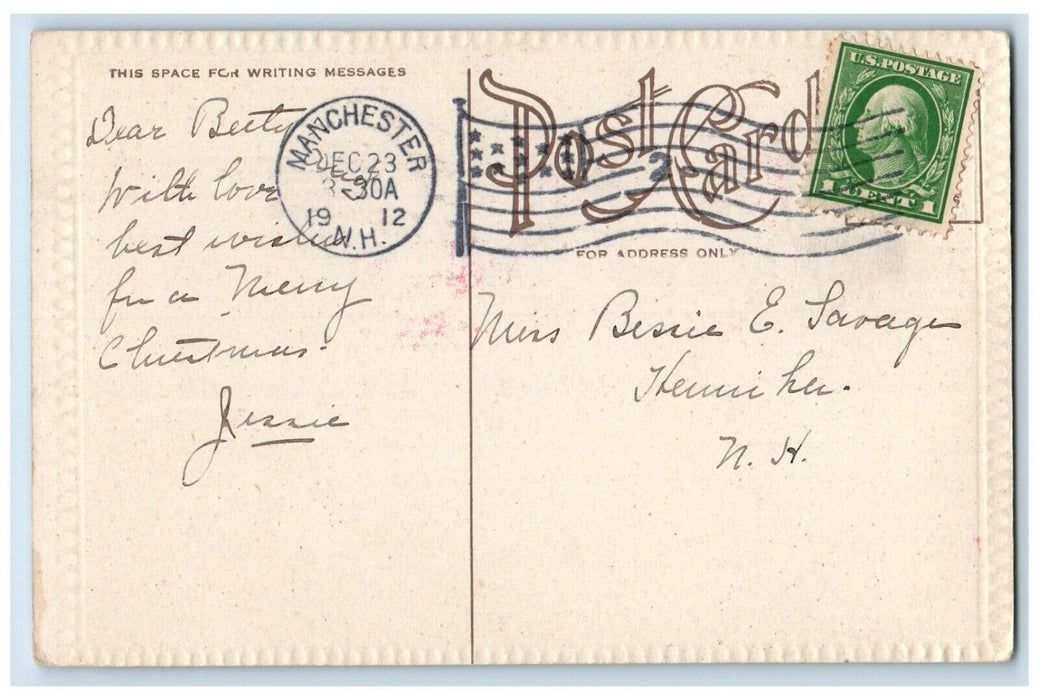 THIS SPACE FOR WRITING MESSAGES
Dear Betty
With love
best wishes
for a Merry
Christmas.
Jessie
MANCHESTER
DEC 23
30A
19 12
N.H.
2
Post Card
FOR ADDRESS ONLY
U.S. POSTAGE
1 CENT 1
Miss Bessie E. Savage
Henniker.
N. H.